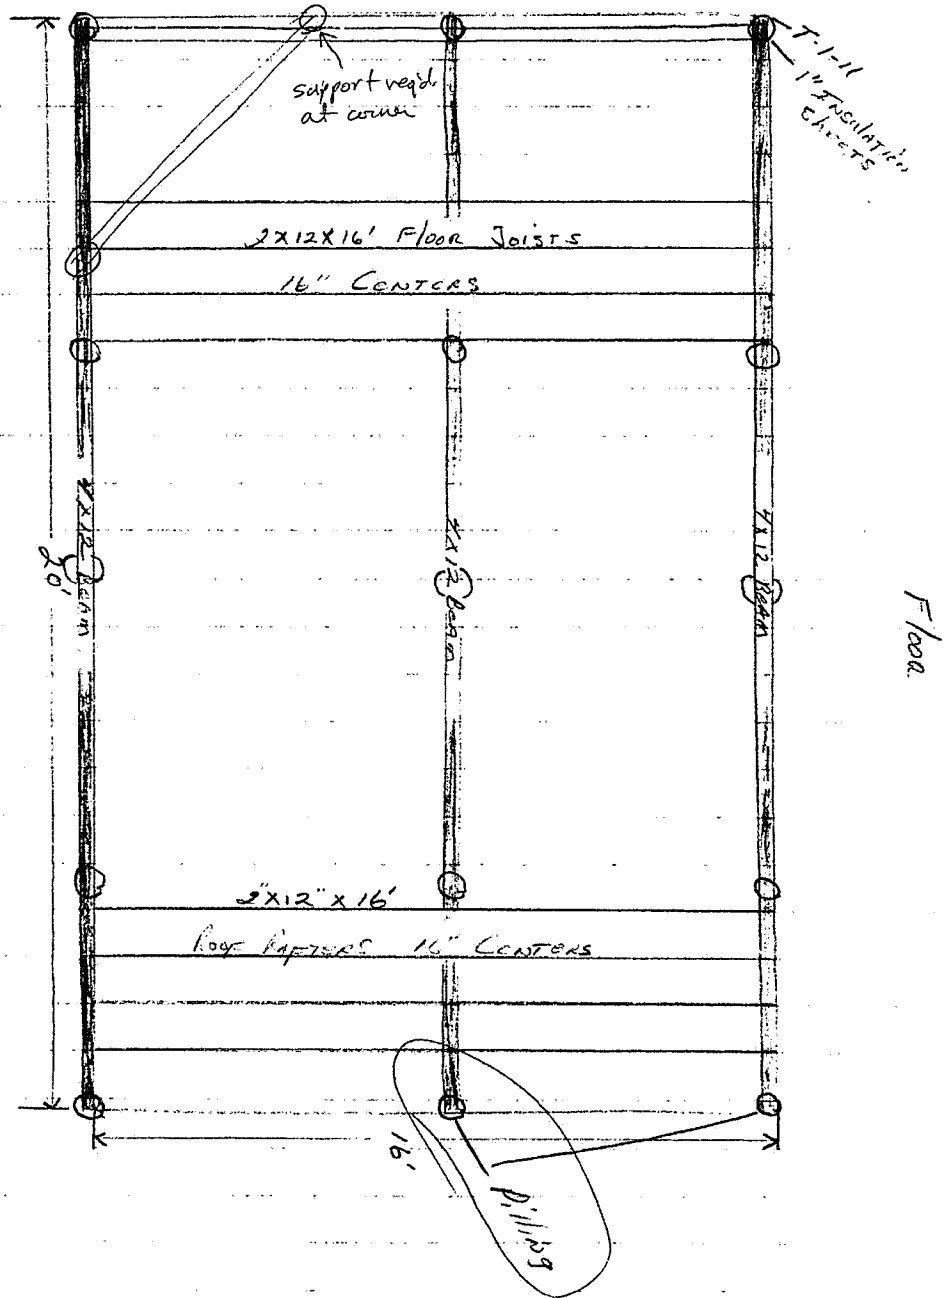 support req'd
at corner
T-1-11
1" INSULATION
SHEETS
2X12X16' Floor Joists
16" CENTERS
4X12 BEAM
4X12 BEAM
4X12 BEAM
20'
Floor
2"X12"X16'
Roof RAFTERS 16" CENTERS
16'
Pilling